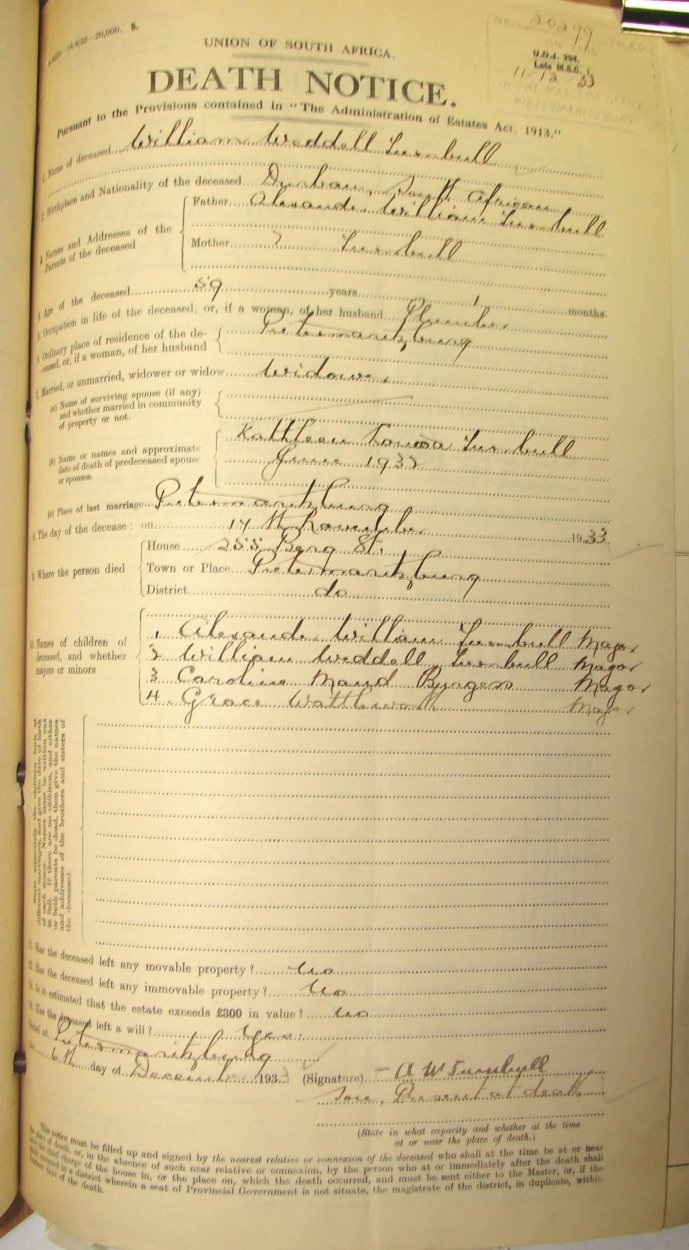 20299
S.
UNION OF SOUTH AFRICA.
U.D.J. 294.
Late M.S.C. 1.
11/12 33
DEATH NOTICE.
Pursuant to the Provisions contained in "The Administration of Estates Act, 1913."
1. Name of deceased William Weddell Turnbull
2. Birthplace and Nationality of the deceased Durban, South African
3. Names and Addresses of the Parents of the deceased
Father Alexander William Turnbull
Mother ? Turnbull
4. Age of the deceased 59 years 1 months.
5. Occupation in life of the deceased, or, if a woman, of her husband Plumber
6. Ordinary place of residence of the deceased, or, if a woman, of her husband
Pietermaritzburg
7. Married, or unmarried, widower or widow Widower
(a) Name of surviving spouse (if any)
and whether married in community
of property or not.
(b) Name or names and approximate
date of death of predeceased spouse
or spouses.
Kathleen Turnbull
June
(c) Place of last marriage Pietermaritzburg
8. The day of the decease: on 17th November 1933
9. Where the person died
House 255 Berg St.
Town or Place Pietermaritzburg
District do
10. Names of children of
deceased, and whether
majors or minors
1 Alexander William Turnbull Major
2 William Weddell Turnbull Major
3 Caroline Maud Burgess Major
4 Grace Major
State separately the children of
different marriages, and give the date of birth
of each minor. Names must be written out
in full. If there are no children, and either
or both parents be dead, then give the names
and addresses of the brothers and sisters of
the deceased.
11. Has the deceased left any movable property? No
12. Has the deceased left any immovable property? No
13. Is it estimated that the estate exceeds £300 in value? No
14. Has the deceased left a will? Yes.
Dated at Pietermaritzburg
the 6th day of December 1933 (Signature) A W Turnbull
Son, Present at death
(State in what capacity and whether at the time
at or near the place of death.)
This notice must be filled up and signed by the nearest relative or connexion of the deceased who shall at the time be at or near
the place of death, or, in the absence of such near relative or connexion, by the person who at or immediately after the death shall
have the chief charge of the house in, or the place on, which the death occurred, and must be sent either to the Master, or, if the
death occurred in a district wherein a seat of Provincial Government is not situate, the magistrate of the district, in duplicate, within
days of the death.